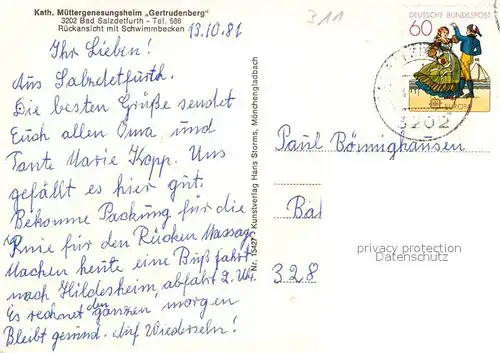 Kath. Müttergenesungsheim „Gertrudenberg"
3202 Bad Salzdetfurth - Tel. 586
Rückansicht mit Schwimmbecken
13.10.81
Ihr Lieben!
Aus Salzdetfurth.
Die besten Grüße sendet
Euch allen Oma und
Tante Marie Kopp. Uns
gefällt es hier gut.
Bekomme Packung für die
Knie für den Rücken Massag.
Machen heute eine Bußfahrt
nach Hildesheim, abfahrt 2. Uhr
Es rechnet den ganzen morgen
Bleibt gesund. Auf Wiedersehn!
Nr. 15427 Kunstverlag Hans Storms, Mönchengladbach
311
DEUTSCHE BUNDESPOST
60
EUROPA
3202
Paul Bömighausen
Bal
privacy protection
Datenschutz
328